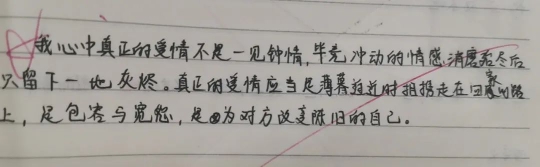 我心中真正的爱情不是一见钟情,毕竟冲动的情感消磨殆尽后
只留下一地灰烬。真正的爱情应当是薄暮迫近时相携走在回家的路
上,是包容与宽恕,是为对方改变陈旧的自己。